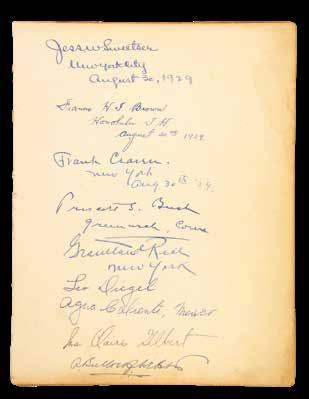 Jess W Sweetser
New York City
August 30, 1929
Francis H. I. Brown
Honolulu T. H.
August 30th 1929.
Frank Craven.
New York
Aug 30th '29.
Prescott S. Bush
Greenwich, Conn
Grantland Rice
New York
Leo Diegel
Agua Caliente, Mexico
Ina Claire Gilbert